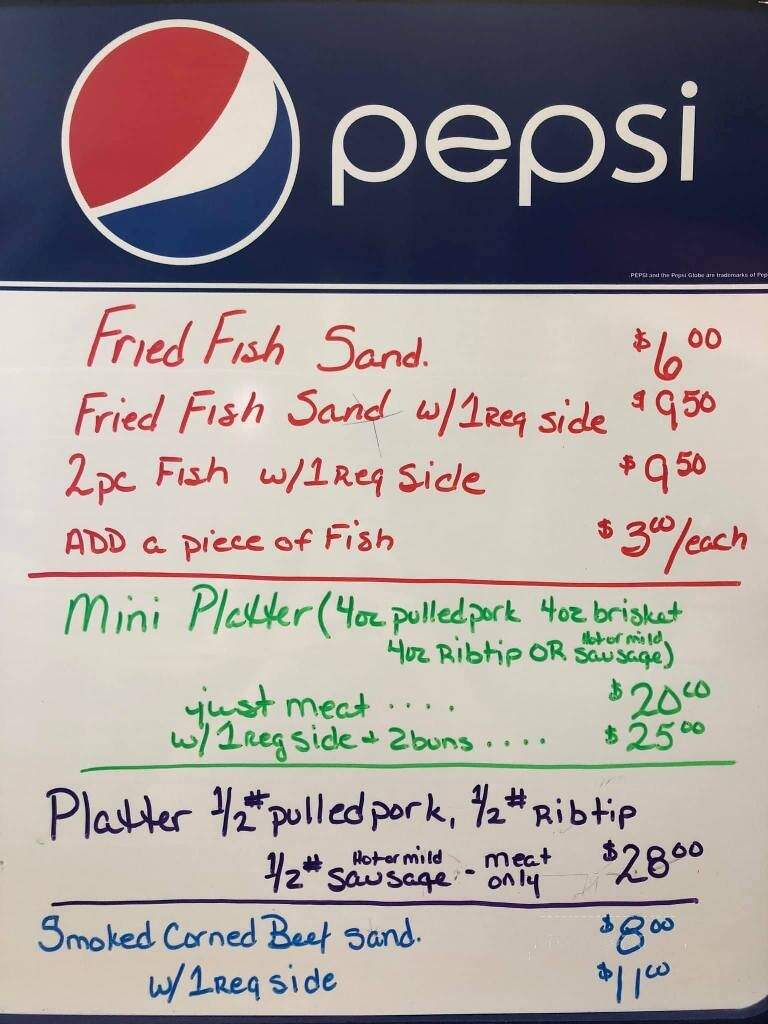 pepsi
PEPSI and the Pepsi Globe are trademarks of Pep
Fried Fish Sand. $6 00
Fried Fish Sand w/1 Reg side $9 50
2pc Fish w/1 Reg Side $9 50
ADD a piece of Fish $3 00/each
Mini Platter (4oz pulled pork 4oz brisket
4oz Ribtip OR Hot or mild sausage)
just meat .... $20 00
w/1 Reg side + 2 buns .... $25 00
Platter 1/2# pulled pork, 1/2# Ribtip
1/2# Hot or mild sausage - meat only $28 00
Smoked Corned Beef Sand. $8 00
w/1 Reg side $11 00